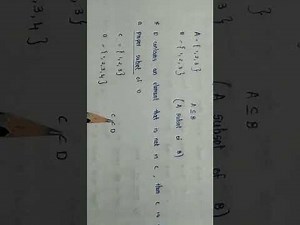 A = {1,2,3}
A ⊆ B
B = {1,2,3}
(A subset of B)
If D contains an element that is not in C, then C is
a proper subset of D
C = {1,2,3}
D = {1,2,3,4}
}
A ⊆ B
(A subset of B)
,3,4}